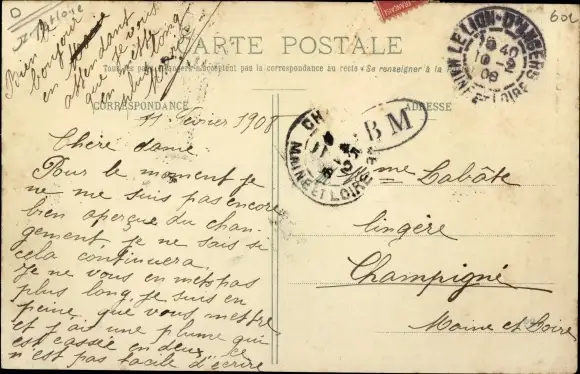 CARTE POSTALE
Tous les pays étrangers n'acceptent pas la correspondance au recto «Se renseigner à la
CORRESPONDANCE
ADRESSE
11 février 1908
Chère dame.
Pour le moment je
ne me suis pas encore
bien aperçue du chan-
gement, je ne sais si
cela continuera.
Je ne vous en mets pas
plus long, je suis en
peine que vous mettre
et j'ai une plume qui
est cassée en deux, ce
n'est pas facile d'écrire
Bien le
bonjour
en
attendant
que je vous
en
plus long
Mme Labâte
lingère
Champigné
Maine et Loire
LE LION-D'ANGERS
MAINE-ET-LOIRE
10-2
08
BM
CH
MAINE-ET-LOIRE
60c